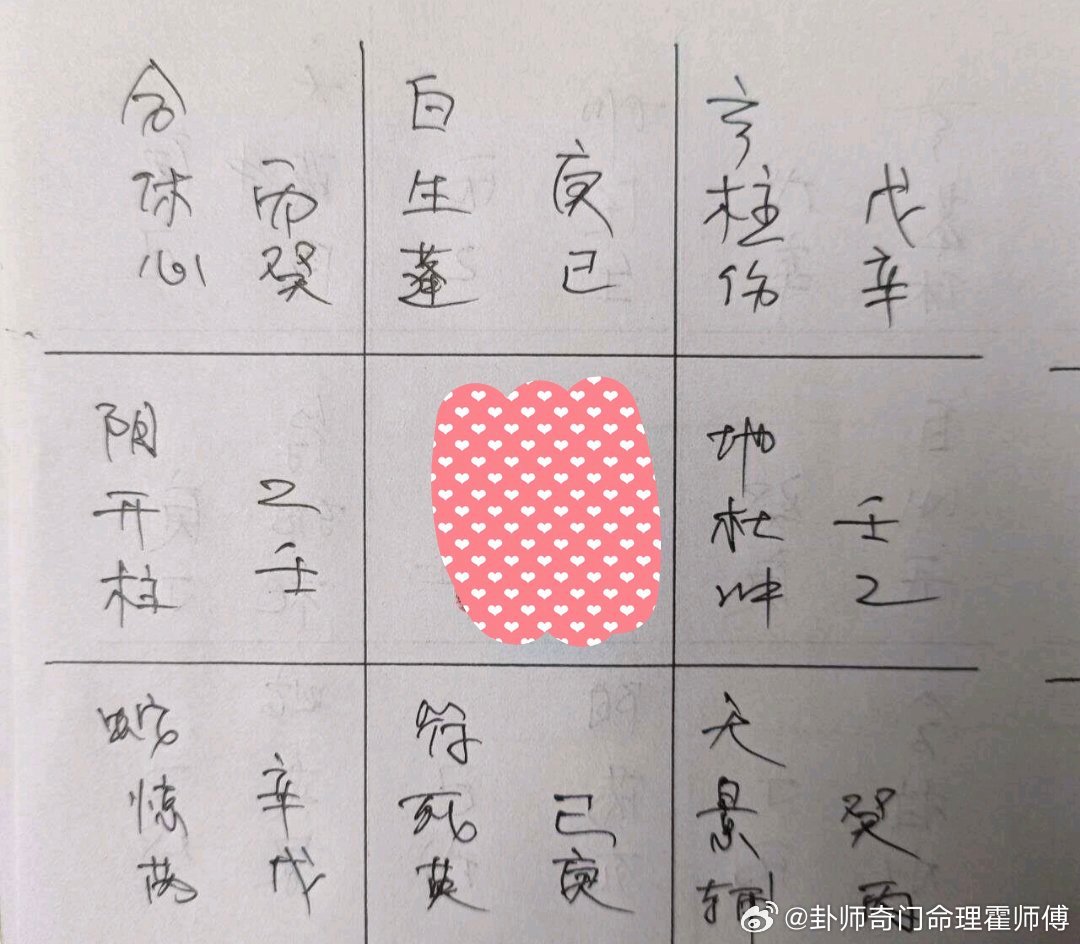 合
休 丙
心 癸
白
生 庚
蓬 己
玄
柱 戊
伤 辛
阴
开 乙
柱 壬
地
杜 壬
冲 乙
蛇
惊 辛
芮 戊
符
死 己
英 庚
天
景 癸
辅 丙
@卦师奇门命理霍师傅